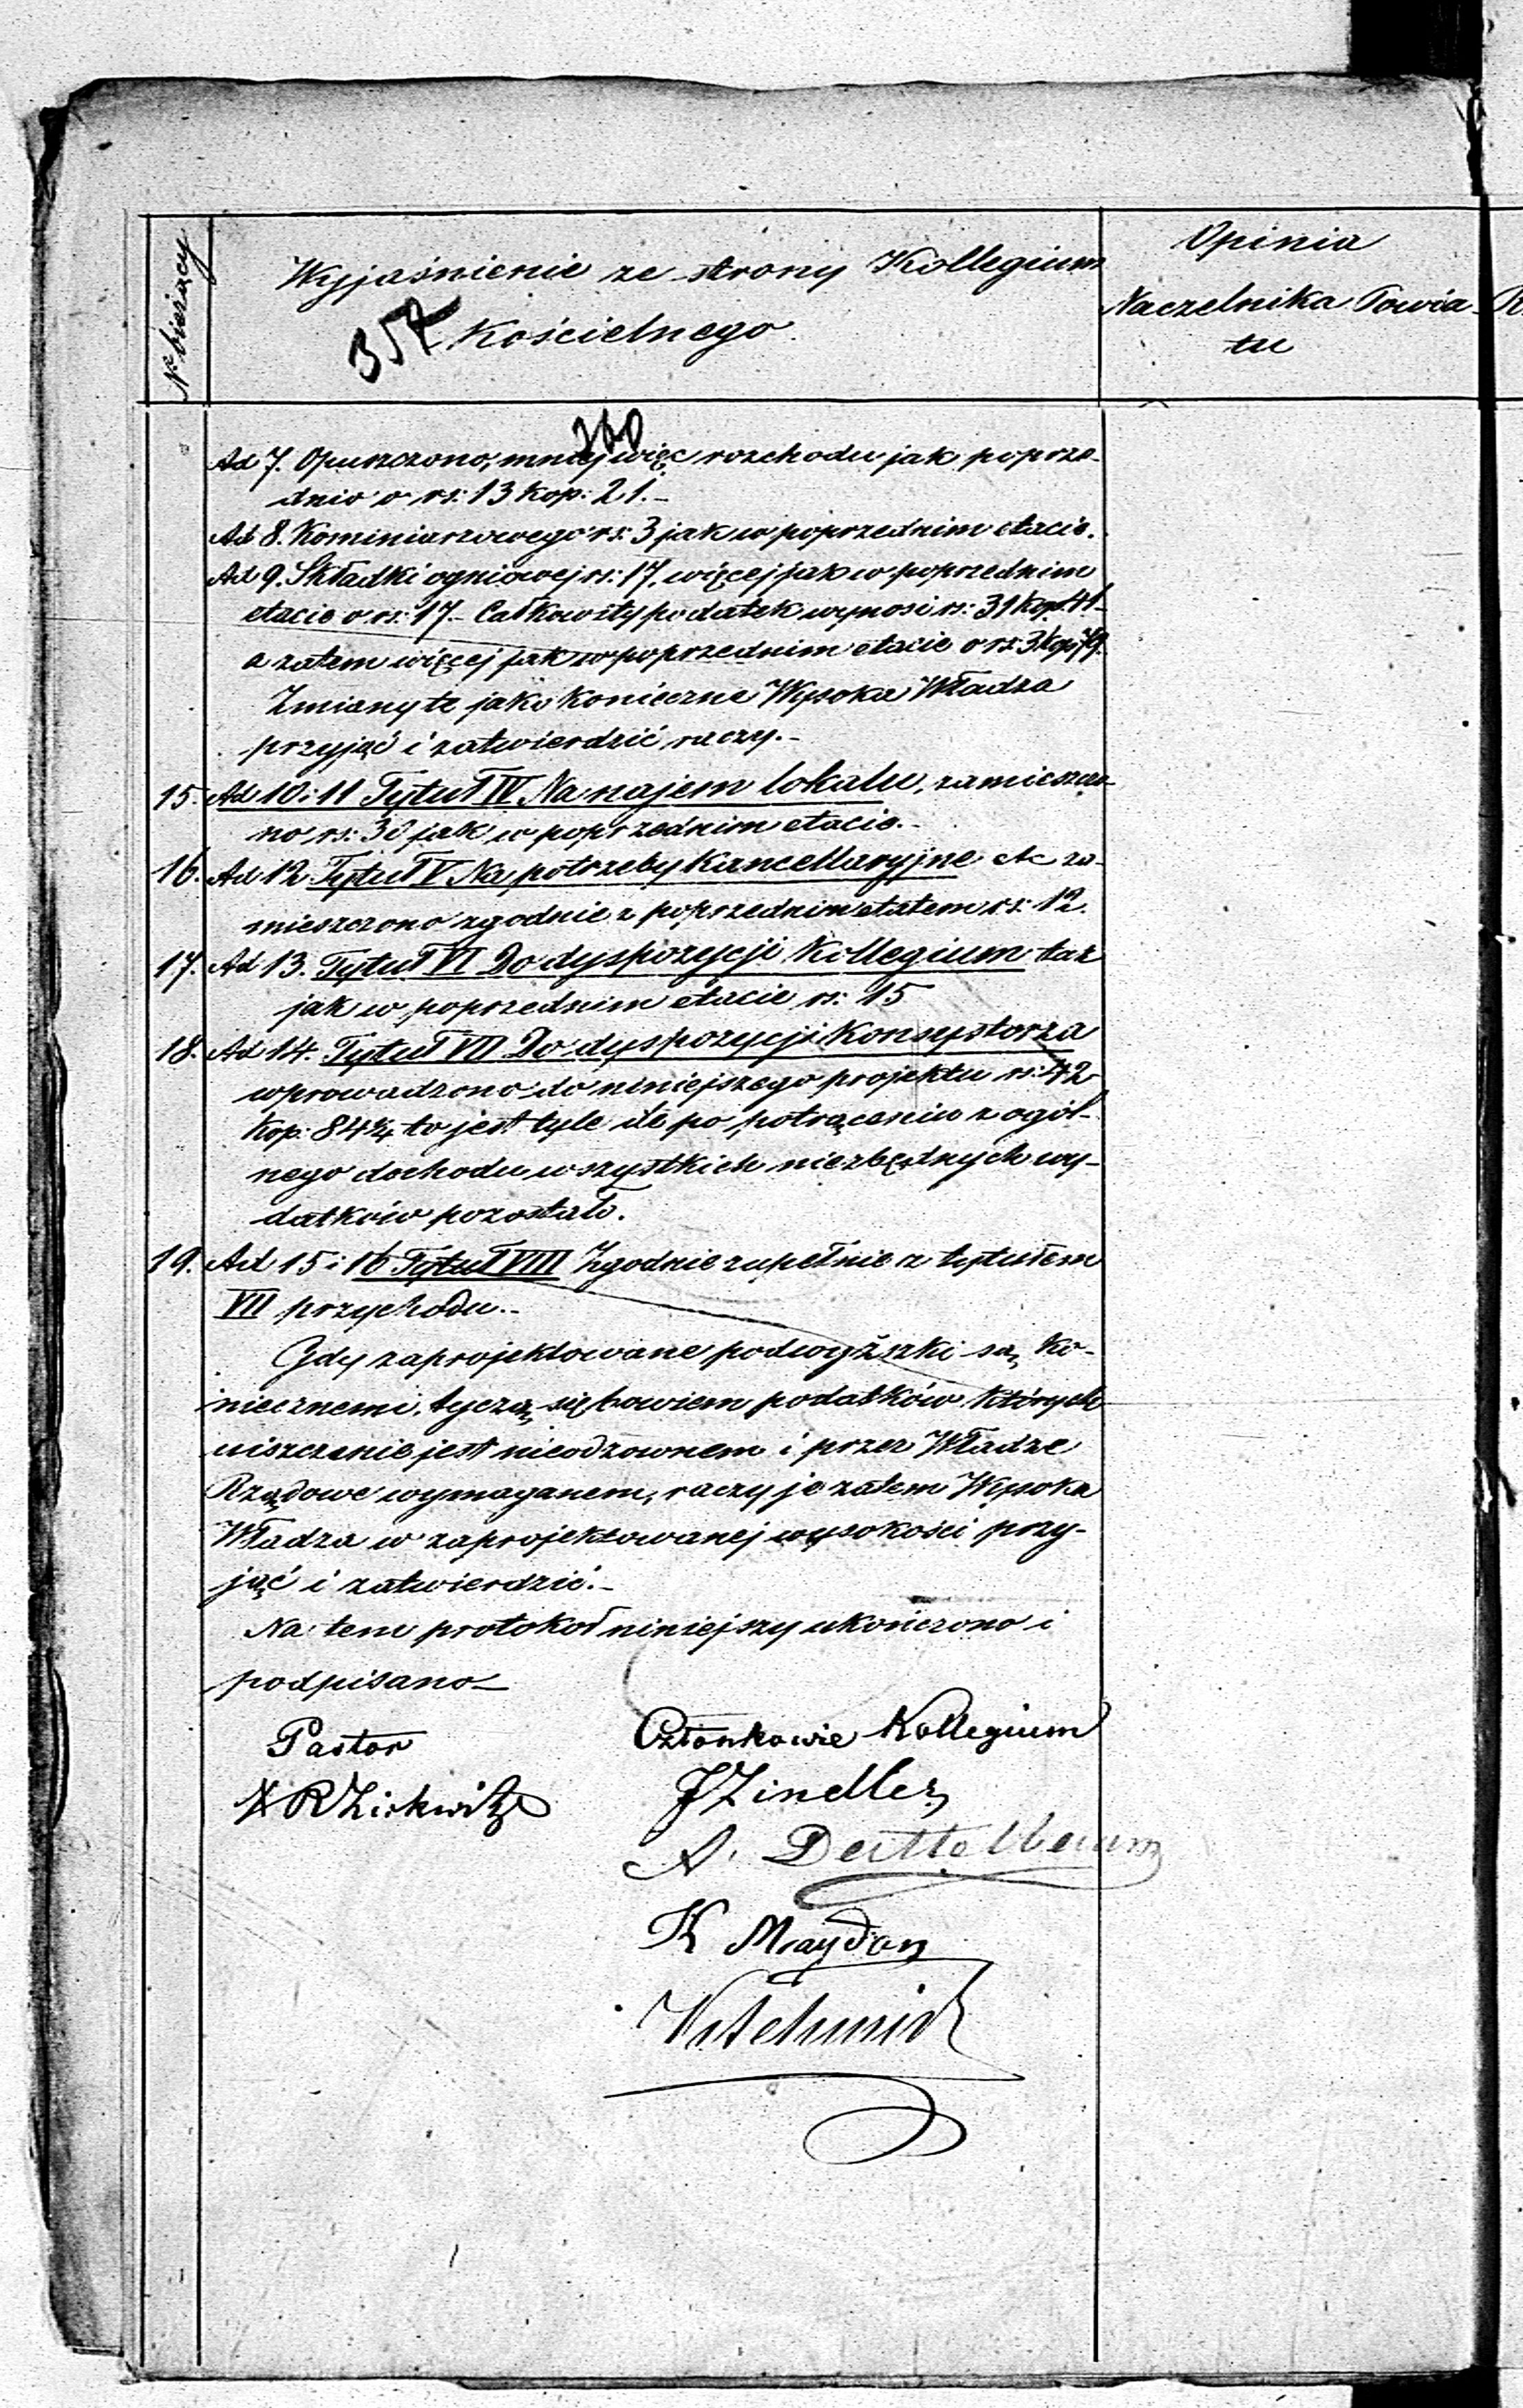 Nr bieżący
Wyjaśnienie ze strony Kollegium
Kościelnego.
357
Opinia
Naczelnika Powia-
tu
360
Ad 7. Opuszczono, mniej więc rozchodu jak poprze-
dnio o rs: 13 kop: 21.-
Ad 8. Kominiarzowego rs: 3 jak w poprzednim etacie.
Ad 9. Składki ogniowej rs: 17, więcej jak w poprzednim
etacie o rs: 17.- Całkowity podatek wynosi rs: 31 kop. 41-
a zatem więcej jak w poprzednim etacie o rs: 3 kop 79.
Zmiany te jako konieczne Wysoka Władza
przyjąć i zatwierdzić raczy.-
15. Ad 10 i 11 Tytuł IV Na najem lokalu, zamieszczo-
no rs: 30 jak w poprzednim etacie.-
16. Ad 12 Tytuł V Na potrzeby Kancellaryjne etc za-
mieszczono zgodnie z poprzednim etatem rs: 12.
17. Ad 13. Tytuł VI Do dyspozycji Kollegium tak
jak w poprzednim etacie rs: 15
18. Ad 14. Tytuł VII Do dyspozycji Konsystorza
wprowadzono do niniejszego projektu rs: 42
kop. 84¾ to jest tyle ile po potrąceniu z ogól-
nego dochodu wszystkich niezbędnych wy-
datków pozostało.
19. Ad 15 i 16 Tytuł VIII Zgodnie zupełnie z tytułem
VII przychodu.-
Gdy zaprojektowane podwyżki są ko-
niecznemi, tyczą się bowiem podatków których
uiszczenie jest nieodzownem i przez Władze
Rządowe wymaganem, raczy je zatem Wysoka
Władza w zaprojektowanej wysokości przy-
jąć i zatwierdzić.-
Na tem protokół niniejszy ukończono i
podpisano-
Pastor
Członkowie Kollegium
J Zindler
A.
K Maydon